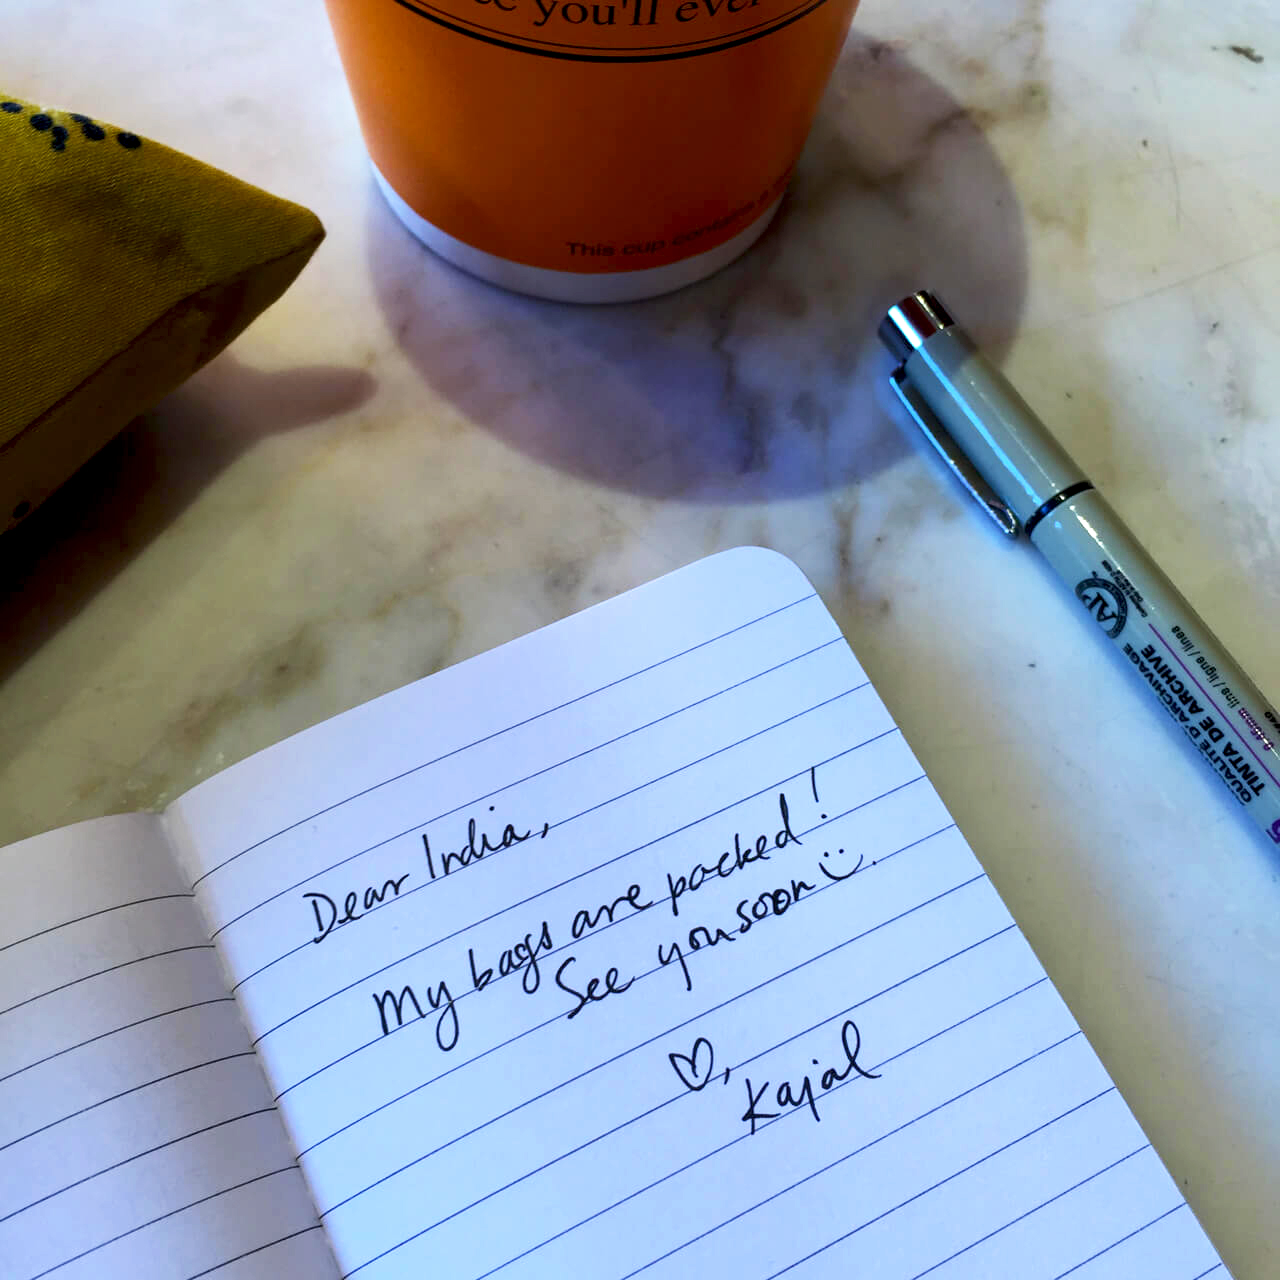 you'll ever
This cup contains
AP
line / ligne / linea
QUALITÉ D'ARCHIVAGE
TINTA DE ARCHIVE
Dear India,
My bags are packed!
See you soon :)
♡,
Kajal